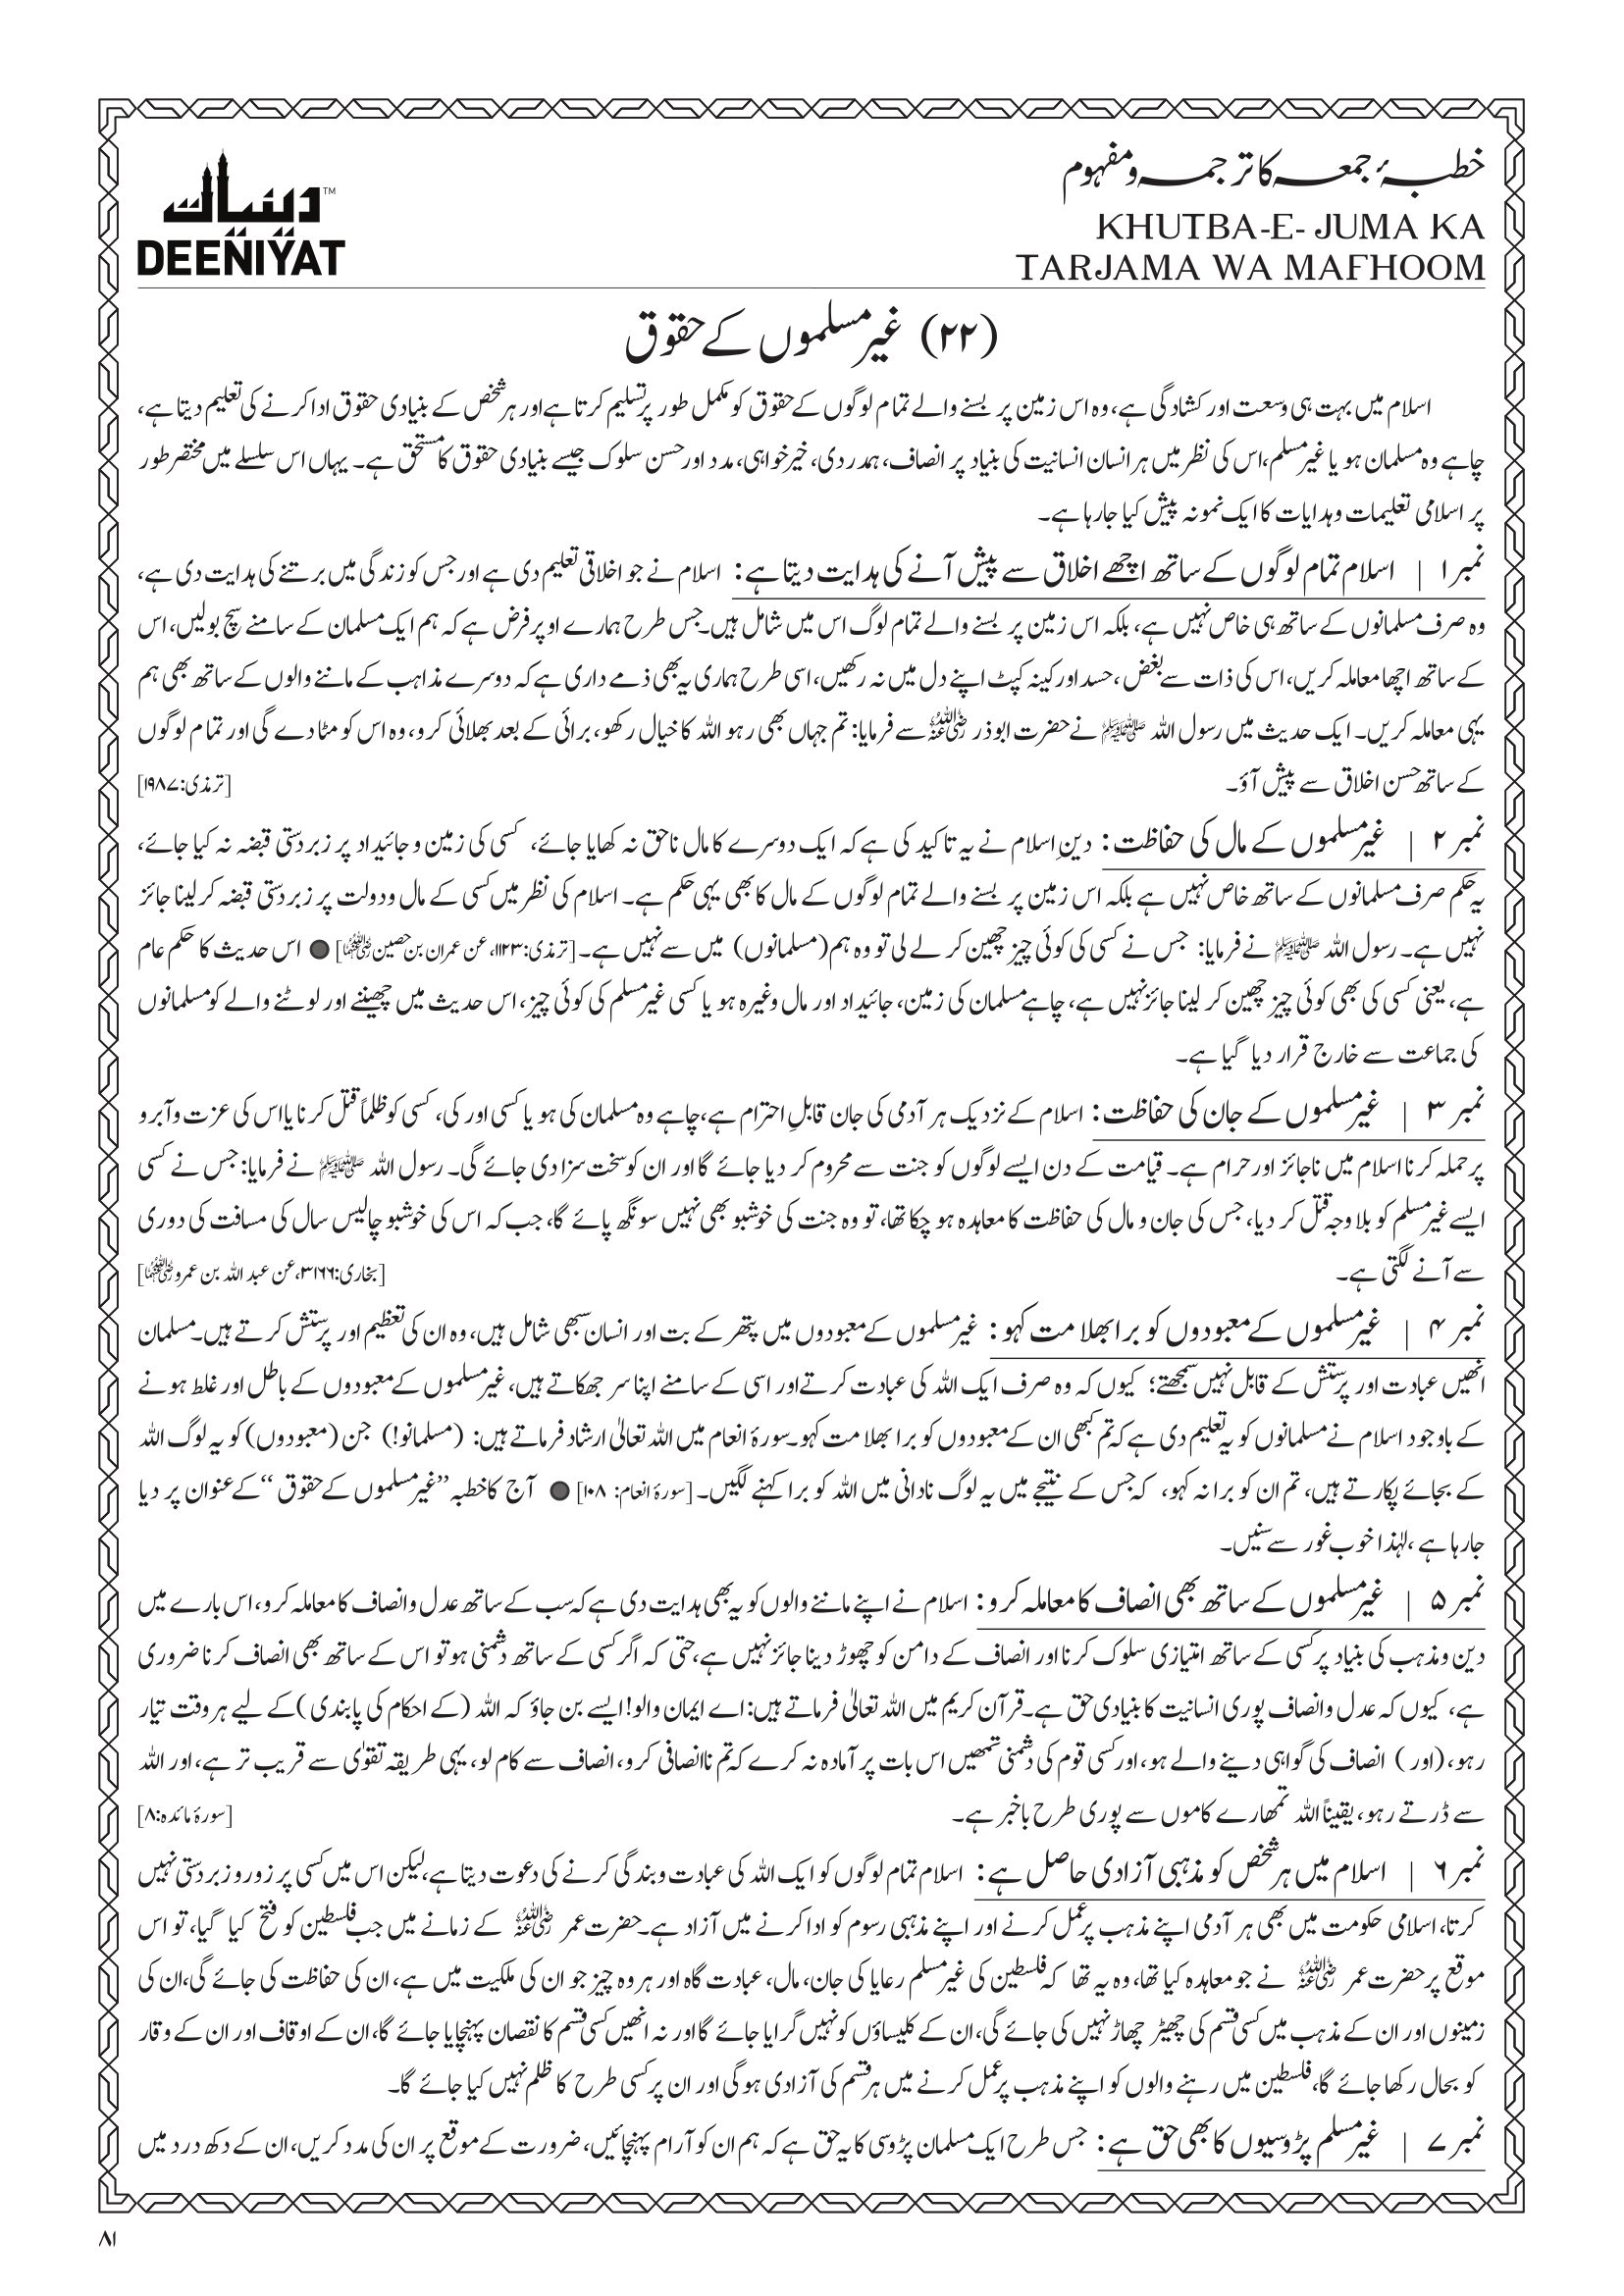 خطبۂ جمعہ کا ترجمہ و مفہوم
KHUTBA-E- JUMA KA
TARJAMA WA MAFHOOM
دینیات™
DEENIYAT
(۲۲) غیر مسلموں کے حقوق
اسلام میں بہت ہی وسعت اور کشادگی ہے، وہ اس زمین پر بسنے والے تمام لوگوں کے حقوق کو مکمل طور پر تسلیم کرتا ہے اور ہر شخص کے بنیادی حقوق ادا کرنے کی تعلیم دیتا ہے،
چاہے وہ مسلمان ہو یا غیر مسلم، اس کی نظر میں ہر انسان انسانیت کی بنیاد پر انصاف، ہمدردی، خیرخواہی، مدد اور حسن سلوک جیسے بنیادی حقوق کا مستحق ہے۔ یہاں اس سلسلے میں مختصر طور
پر اسلامی تعلیمات و ہدایات کا ایک نمونہ پیش کیا جا رہا ہے۔
نمبر ۱ | اسلام تمام لوگوں کے ساتھ اچھے اخلاق سے پیش آنے کی ہدایت دیتا ہے: اسلام نے جو اخلاقی تعلیم دی ہے اور جس کو زندگی میں برتنے کی ہدایت دی ہے،
وہ صرف مسلمانوں کے ساتھ ہی خاص نہیں ہے، بلکہ اس زمین پر بسنے والے تمام لوگ اس میں شامل ہیں۔ جس طرح ہمارے اوپر فرض ہے کہ ہم ایک مسلمان کے سامنے سچ بولیں، اس
کے ساتھ اچھا معاملہ کریں، اس کی ذات سے بغض، حسد اور کینہ کپٹ اپنے دل میں نہ رکھیں، اسی طرح ہماری یہ بھی ذمے داری ہے کہ دوسرے مذاہب کے ماننے والوں کے ساتھ بھی ہم
یہی معاملہ کریں۔ ایک حدیث میں رسول اللہ ﷺ نے حضرت ابوذر رضی اللہ عنہ سے فرمایا: تم جہاں بھی رہو اللہ کا خیال رکھو، برائی کے بعد بھلائی کرو، وہ اس کو مٹا دے گی اور تمام لوگوں
کے ساتھ حسن اخلاق سے پیش آؤ۔ [ترمذی: ۱۹۸۷]
نمبر ۲ | غیر مسلموں کے مال کی حفاظت: دینِ اسلام نے یہ تاکید کی ہے کہ ایک دوسرے کا مال ناحق نہ کھایا جائے، کسی کی زمین و جائیداد پر زبردستی قبضہ نہ کیا جائے،
یہ حکم صرف مسلمانوں کے ساتھ خاص نہیں ہے بلکہ اس زمین پر بسنے والے تمام لوگوں کے مال کا بھی یہی حکم ہے۔ اسلام کی نظر میں کسی کے مال و دولت پر زبردستی قبضہ کر لینا جائز
نہیں ہے۔ رسول اللہ ﷺ نے فرمایا: جس نے کسی کی کوئی چیز چھین کر لے لی تو وہ ہم (مسلمانوں) میں سے نہیں ہے۔ [ترمذی: ۱۱۲۳، عن عمران بن حصین رضی اللہ عنہما] ● اس حدیث کا حکم عام
ہے، یعنی کسی کی بھی کوئی چیز چھین کر لینا جائز نہیں ہے، چاہے مسلمان کی زمین، جائیداد اور مال وغیرہ ہو یا کسی غیر مسلم کی کوئی چیز، اس حدیث میں چھیننے اور لوٹنے والے کو مسلمانوں
کی جماعت سے خارج قرار دیا گیا ہے۔
نمبر ۳ | غیر مسلموں کے جان کی حفاظت: اسلام کے نزدیک ہر آدمی کی جان قابلِ احترام ہے، چاہے وہ مسلمان کی ہو یا کسی اور کی، کسی کو ظلماً قتل کرنا یا اس کی عزت و آبرو
پر حملہ کرنا اسلام میں ناجائز اور حرام ہے۔ قیامت کے دن ایسے لوگوں کو جنت سے محروم کر دیا جائے گا اور ان کو سخت سزا دی جائے گی۔ رسول اللہ ﷺ نے فرمایا: جس نے کسی
ایسے غیر مسلم کو بلا وجہ قتل کر دیا، جس کی جان و مال کی حفاظت کا معاہدہ ہو چکا تھا، تو وہ جنت کی خوشبو بھی نہیں سونگھ پائے گا، جب کہ اس کی خوشبو چالیس سال کی مسافت کی دوری
سے آنے لگتی ہے۔ [بخاری: ۳۱۶۶، عن عبد اللہ بن عمرو رضی اللہ عنہما]
نمبر ۴ | غیر مسلموں کے معبودوں کو برا بھلا مت کہو: غیر مسلموں کے معبودوں میں پتھر کے بت اور انسان سبھی شامل ہیں، وہ ان کی تعظیم اور پرستش کرتے ہیں۔ مسلمان
انھیں عبادت اور پرستش کے قابل نہیں سمجھتے؛ کیوں کہ وہ صرف ایک اللہ کی عبادت کرتے اور اسی کے سامنے اپنا سر جھکاتے ہیں، غیر مسلموں کے معبودوں کے باطل اور غلط ہونے
کے باوجود اسلام نے مسلمانوں کو یہ تعلیم دی ہے کہ تم کبھی ان کے معبودوں کو برا بھلا مت کہو۔ سورۂ انعام میں اللہ تعالیٰ ارشاد فرماتے ہیں: (مسلمانو!) جن (معبودوں) کو یہ لوگ اللہ
کے بجائے پکارتے ہیں، تم ان کو برا نہ کہو، کہ جس کے نتیجے میں یہ لوگ نادانی میں اللہ کو برا کہنے لگیں۔ [سورۂ انعام: ۱۰۸] ● آج کا خطبہ ”غیر مسلموں کے حقوق“ کے عنوان پر دیا
جا رہا ہے، لہٰذا خوب غور سے سنیں۔
نمبر ۵ | غیر مسلموں کے ساتھ بھی انصاف کا معاملہ کرو: اسلام نے اپنے ماننے والوں کو یہ بھی ہدایت دی ہے کہ سب کے ساتھ عدل و انصاف کا معاملہ کرو، اس بارے میں
دین و مذہب کی بنیاد پر کسی کے ساتھ امتیازی سلوک کرنا اور انصاف کے دامن کو چھوڑ دینا جائز نہیں ہے، حتی کہ اگر کسی کے ساتھ دشمنی ہو تو اس کے ساتھ بھی انصاف کرنا ضروری
ہے، کیوں کہ عدل و انصاف پوری انسانیت کا بنیادی حق ہے۔ قرآن کریم میں اللہ تعالیٰ فرماتے ہیں: اے ایمان والو! ایسے بن جاؤ کہ اللہ (کے احکام کی پابندی) کے لیے ہر وقت تیار
رہو، (اور) انصاف کی گواہی دینے والے ہو، اور کسی قوم کی دشمنی تمھیں اس بات پر آمادہ نہ کرے کہ تم ناانصافی کرو، انصاف سے کام لو، یہی طریقہ تقوٰی سے قریب تر ہے، اور اللہ
سے ڈرتے رہو، یقیناً اللہ تمھارے کاموں سے پوری طرح باخبر ہے۔ [سورۂ مائدہ: ۸]
نمبر ۶ | اسلام میں ہر شخص کو مذہبی آزادی حاصل ہے: اسلام تمام لوگوں کو ایک اللہ کی عبادت و بندگی کرنے کی دعوت دیتا ہے، لیکن اس میں کسی پر زور و زبردستی نہیں
کرتا، اسلامی حکومت میں بھی ہر آدمی اپنے مذہب پر عمل کرنے اور اپنے مذہبی رسوم کو ادا کرنے میں آزاد ہے۔ حضرت عمر رضی اللہ عنہ کے زمانے میں جب فلسطین کو فتح کیا گیا، تو اس
موقع پر حضرت عمر رضی اللہ عنہ نے جو معاہدہ کیا تھا، وہ یہ تھا کہ فلسطین کی غیر مسلم رعایا کی جان، مال، عبادت گاہ اور ہر وہ چیز جو ان کی ملکیت میں ہے، ان کی حفاظت کی جائے گی، ان کی
زمینوں اور ان کے مذہب میں کسی قسم کی چھیڑ چھاڑ نہیں کی جائے گی، ان کے کلیساؤں کو نہیں گرایا جائے گا اور نہ انھیں کسی قسم کا نقصان پہنچایا جائے گا، ان کے اوقاف اور ان کے وقار
کو بحال رکھا جائے گا، فلسطین میں رہنے والوں کو اپنے مذہب پر عمل کرنے میں ہر قسم کی آزادی ہوگی اور ان پر کسی طرح کا ظلم نہیں کیا جائے گا۔
نمبر ۷ | غیر مسلم پڑوسیوں کا بھی حق ہے: جس طرح ایک مسلمان پڑوسی کا یہ حق ہے کہ ہم ان کو آرام پہنچائیں، ضرورت کے موقع پر ان کی مدد کریں، ان کے دکھ درد میں
۸۱